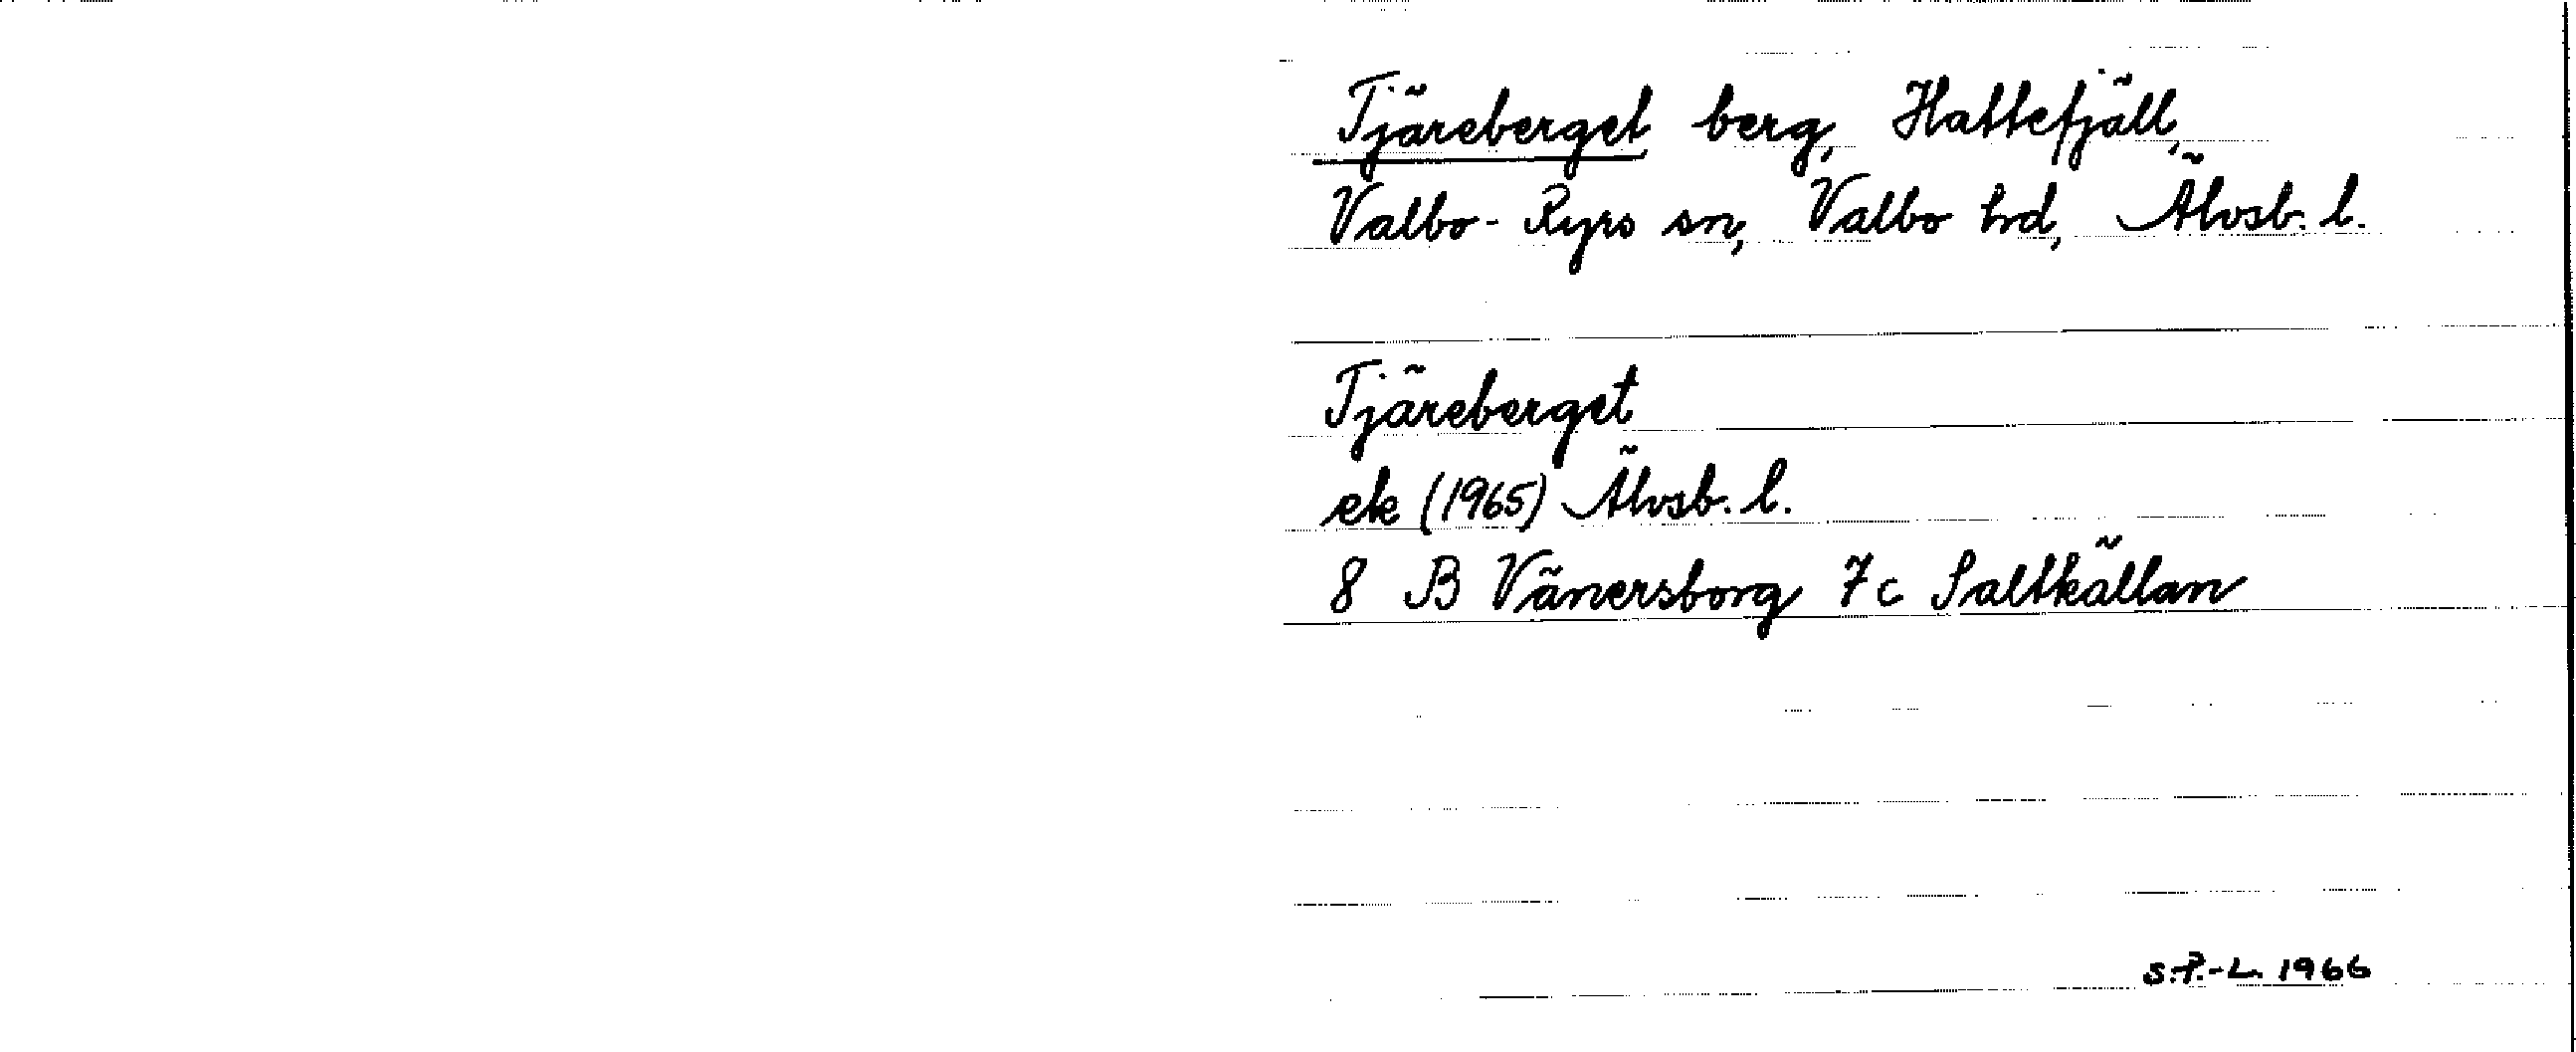 Tjäreberget berg, Hattefjäll,
Valbo-Ryrs sn, Valbo hd, Älvsb. l.
Tjäreberget
ek (1965) Älvsb. l.
8 B Vänersborg 7c Saltkällan
S.P.-L. 1966